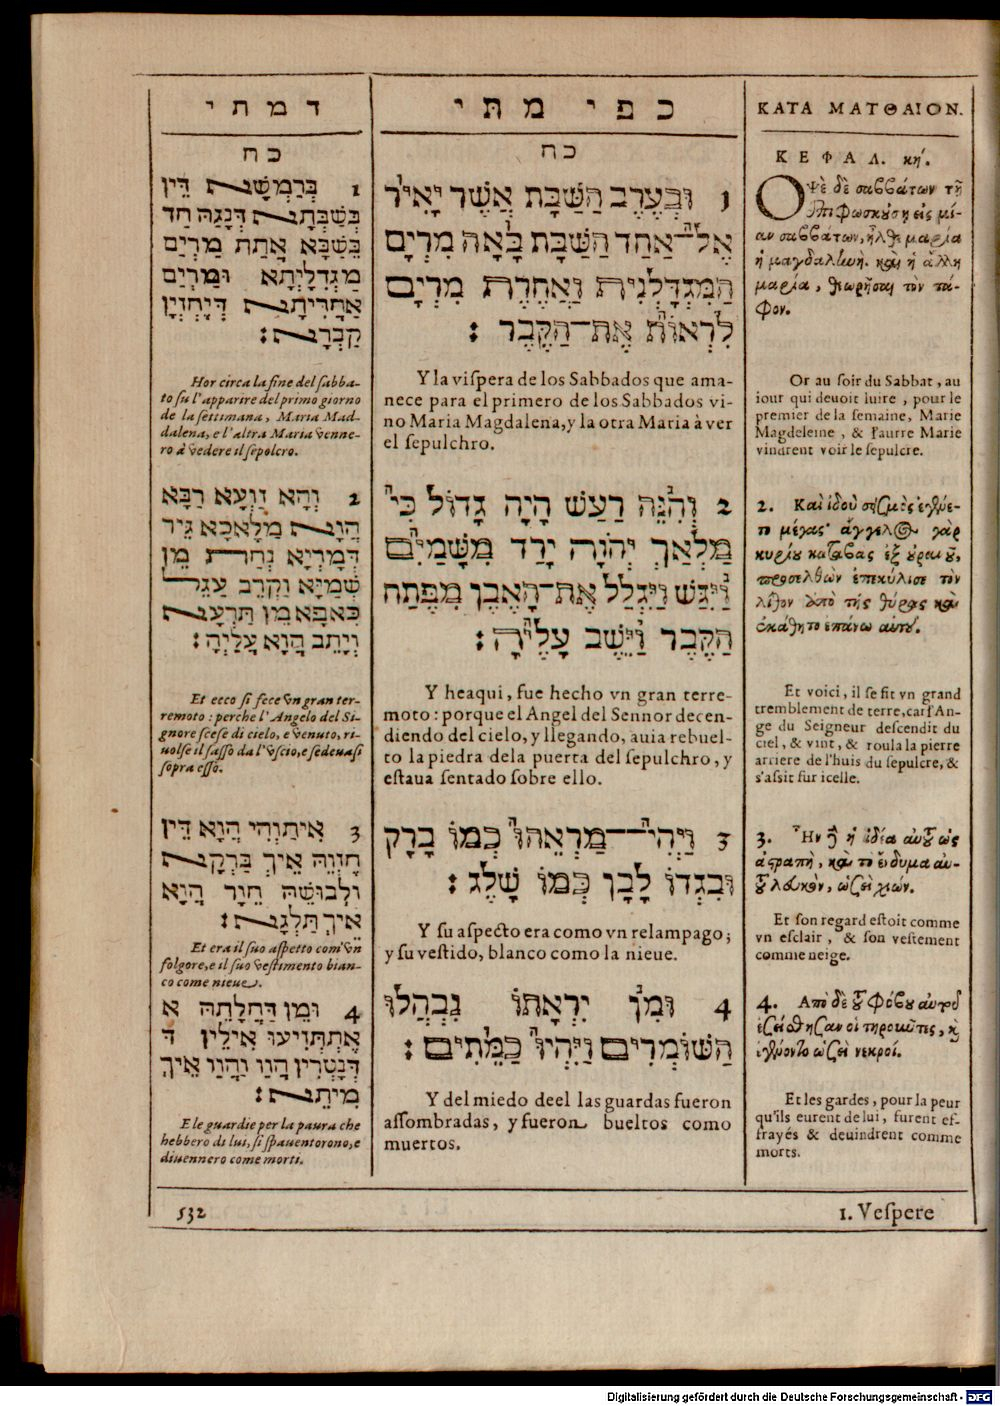 דמתי
כח
1 בְּרַמְשָׁא דֵּין
בְּשַׁבְּתָא דְּנָגַהּ חַד
בְּשַׁבָּא אֲתָת מַרְיַם
מַגְדְלָיְתָא וּמַרְיַם
אַחֲרִיתָא דְּיֶחְזְיָן
קַבְרָא׃
Hor circa la fine del ſabba-
to ſu l'apparire del primo giorno
de la ſettimana, Maria Mad-
dalena, e l'altra Maria venne-
ro à vedere il ſepolcro.
2 וְהָא זַוְעָא רַבָּא
הֲוָא מַלְאֲכָא גֵּיר
דְּמָרְיָא נְחַת מֵן
שְׁמַיָּא וַקְרֵב עַגֵּל
כֵּאפָא מֵן תַּרְעָא
וְיָתֵב הֲוָא עֲלַיְהּ׃
Et ecco ſi fece vn gran ter-
remoto : perche l'Angelo del Si-
gnore ſceſe di cielo, e venuto, ri-
uolſe il ſaſſo da l'vſcio, e ſedeuaſi
ſopra eſſo.
3 אִיתַוְהִי הֲוָא דֵּין
חֶזְוֵהּ אֵיךְ בַּרְקָא
וּלְבוּשֵׁהּ חֵוָר הֲוָא
אֵיךְ תַּלְגָּא׃
Et era il ſuo aſpetto com'vn
folgore, e il ſuo veſtimento bian-
co come nieue.
4 וּמֵן דַּחֲלָתֵהּ א
אֶתְּתְּזִיעוּ אַיְלֵין ד
דְּנָטְרִין הֲווֹ וַהֲווֹ אֵיךְ
מִיתֵא׃
E le guardie per la paura che
hebbero di lui, ſi ſpauentorono, e
diuennero come morti.
כפי מתי
כח
1 וּבְעֶרֶב הַשַּׁבָּת אֲשֶׁר יָאִיר
אֶל־אַחַד הַשַּׁבָּת בָּאָה מִרְיָם
הַמִּגְדָּלְנִית וְאַחֶרֶת מִרְיָם
לִרְאוֹת אֶת־הַקֶּבֶר׃
Y la viſpera de los Sabbados que ama-
nece para el primero de los Sabbados vi-
no Maria Magdalena, y la otra Maria à ver
el ſepulchro.
2 וְהִנֵּה רַעַשׁ הָיָה גָדוֹל כִּי
מַלְאַךְ יְהֹוָה יָרַד מִשָּׁמַיִם
וַיִּגַּשׁ וַיִּגְלַל אֶת־הָאֶבֶן מִפֶּתַח
הַקֶּבֶר וַיֵּשֶׁב עָלֶיהָ׃
Y heaqui, fue hecho vn gran terre-
moto : porque el Angel del Sennor decen-
diendo del cielo, y llegando, auia rebuel-
to la piedra dela puerta del ſepulchro, y
eſtaua ſentado ſobre ello.
3 וַיְהִי־מַרְאֵהוּ כְּמוֹ בָרָק
וּבִגְדוֹ לָבָן כְּמוֹ שָׁלֶג׃
Y ſu aſpecto era como vn relampago;
y ſu veſtido, blanco como la nieue.
4 וּמִן יִרְאָתוֹ נִבְהֲלוּ
הַשּׁוֹמְרִים וַיִּהְיוּ כַּמֵּתִים׃
Y del miedo deel las guardas fueron
aſſombradas, y fueron bueltos como
muertos.
ΚΑΤΑ ΜΑΤΘΑΙΟΝ.
ΚΕΦΑΛ. κη΄.
Οψὲ δὲ σαββάτων τῇ
ἐπιφωσκούσῃ εἰς μί-
αν σαββάτων, ἦλθε μαρία
ἡ μαγδαληνὴ. καὶ ἡ ἄλλη
μαρία, θεωρῆσαι τὸν τά-
φον.
Or au ſoir du Sabbat, au
iour qui deuoit luire, pour le
premier de la ſemaine, Marie
Magdeleine, & l'autre Marie
vindrent voir le ſepulcre.
2. Καὶ ἰδοὺ σεισμὸς ἐγένε-
το μέγας· ἄγγελος γὰρ
κυρίου καταβὰς ἐξ οὐρανοῦ,
προσελθὼν ἀπεκύλισε τὸν
λίθον ἀπὸ τῆς θύρας καὶ
ἐκάθητο ἐπάνω αὐτοῦ.
Et voici, il ſe fit vn grand
tremblement de terre, car l'An-
ge du Seigneur deſcendit du
ciel, & vint, & roula la pierre
arriere de l'huis du ſepulcre, &
s'aſſit ſur icelle.
3. Ἦν δὲ ἡ ἰδέα αὐτοῦ ὡς
ἀστραπὴ, καὶ τὸ ἔνδυμα αὐ-
τοῦ λευκὸν, ὡσεὶ χιών.
Et ſon regard eſtoit comme
vn eſclair, & ſon veſtement
comme neige.
4. Απὸ δὲ τοῦ φόβου αὐτοῦ
ἐσείσθησαν οἱ τηροῦντες, καὶ
ἐγένοντο ὡσεὶ νεκροί.
Et les gardes, pour la peur
qu'ils eurent de lui, furent ef-
frayés & deuindrent comme
morts.
532
1. Veſpere
Digitalisierung gefördert durch die Deutsche Forschungsgemeinschaft - DFG